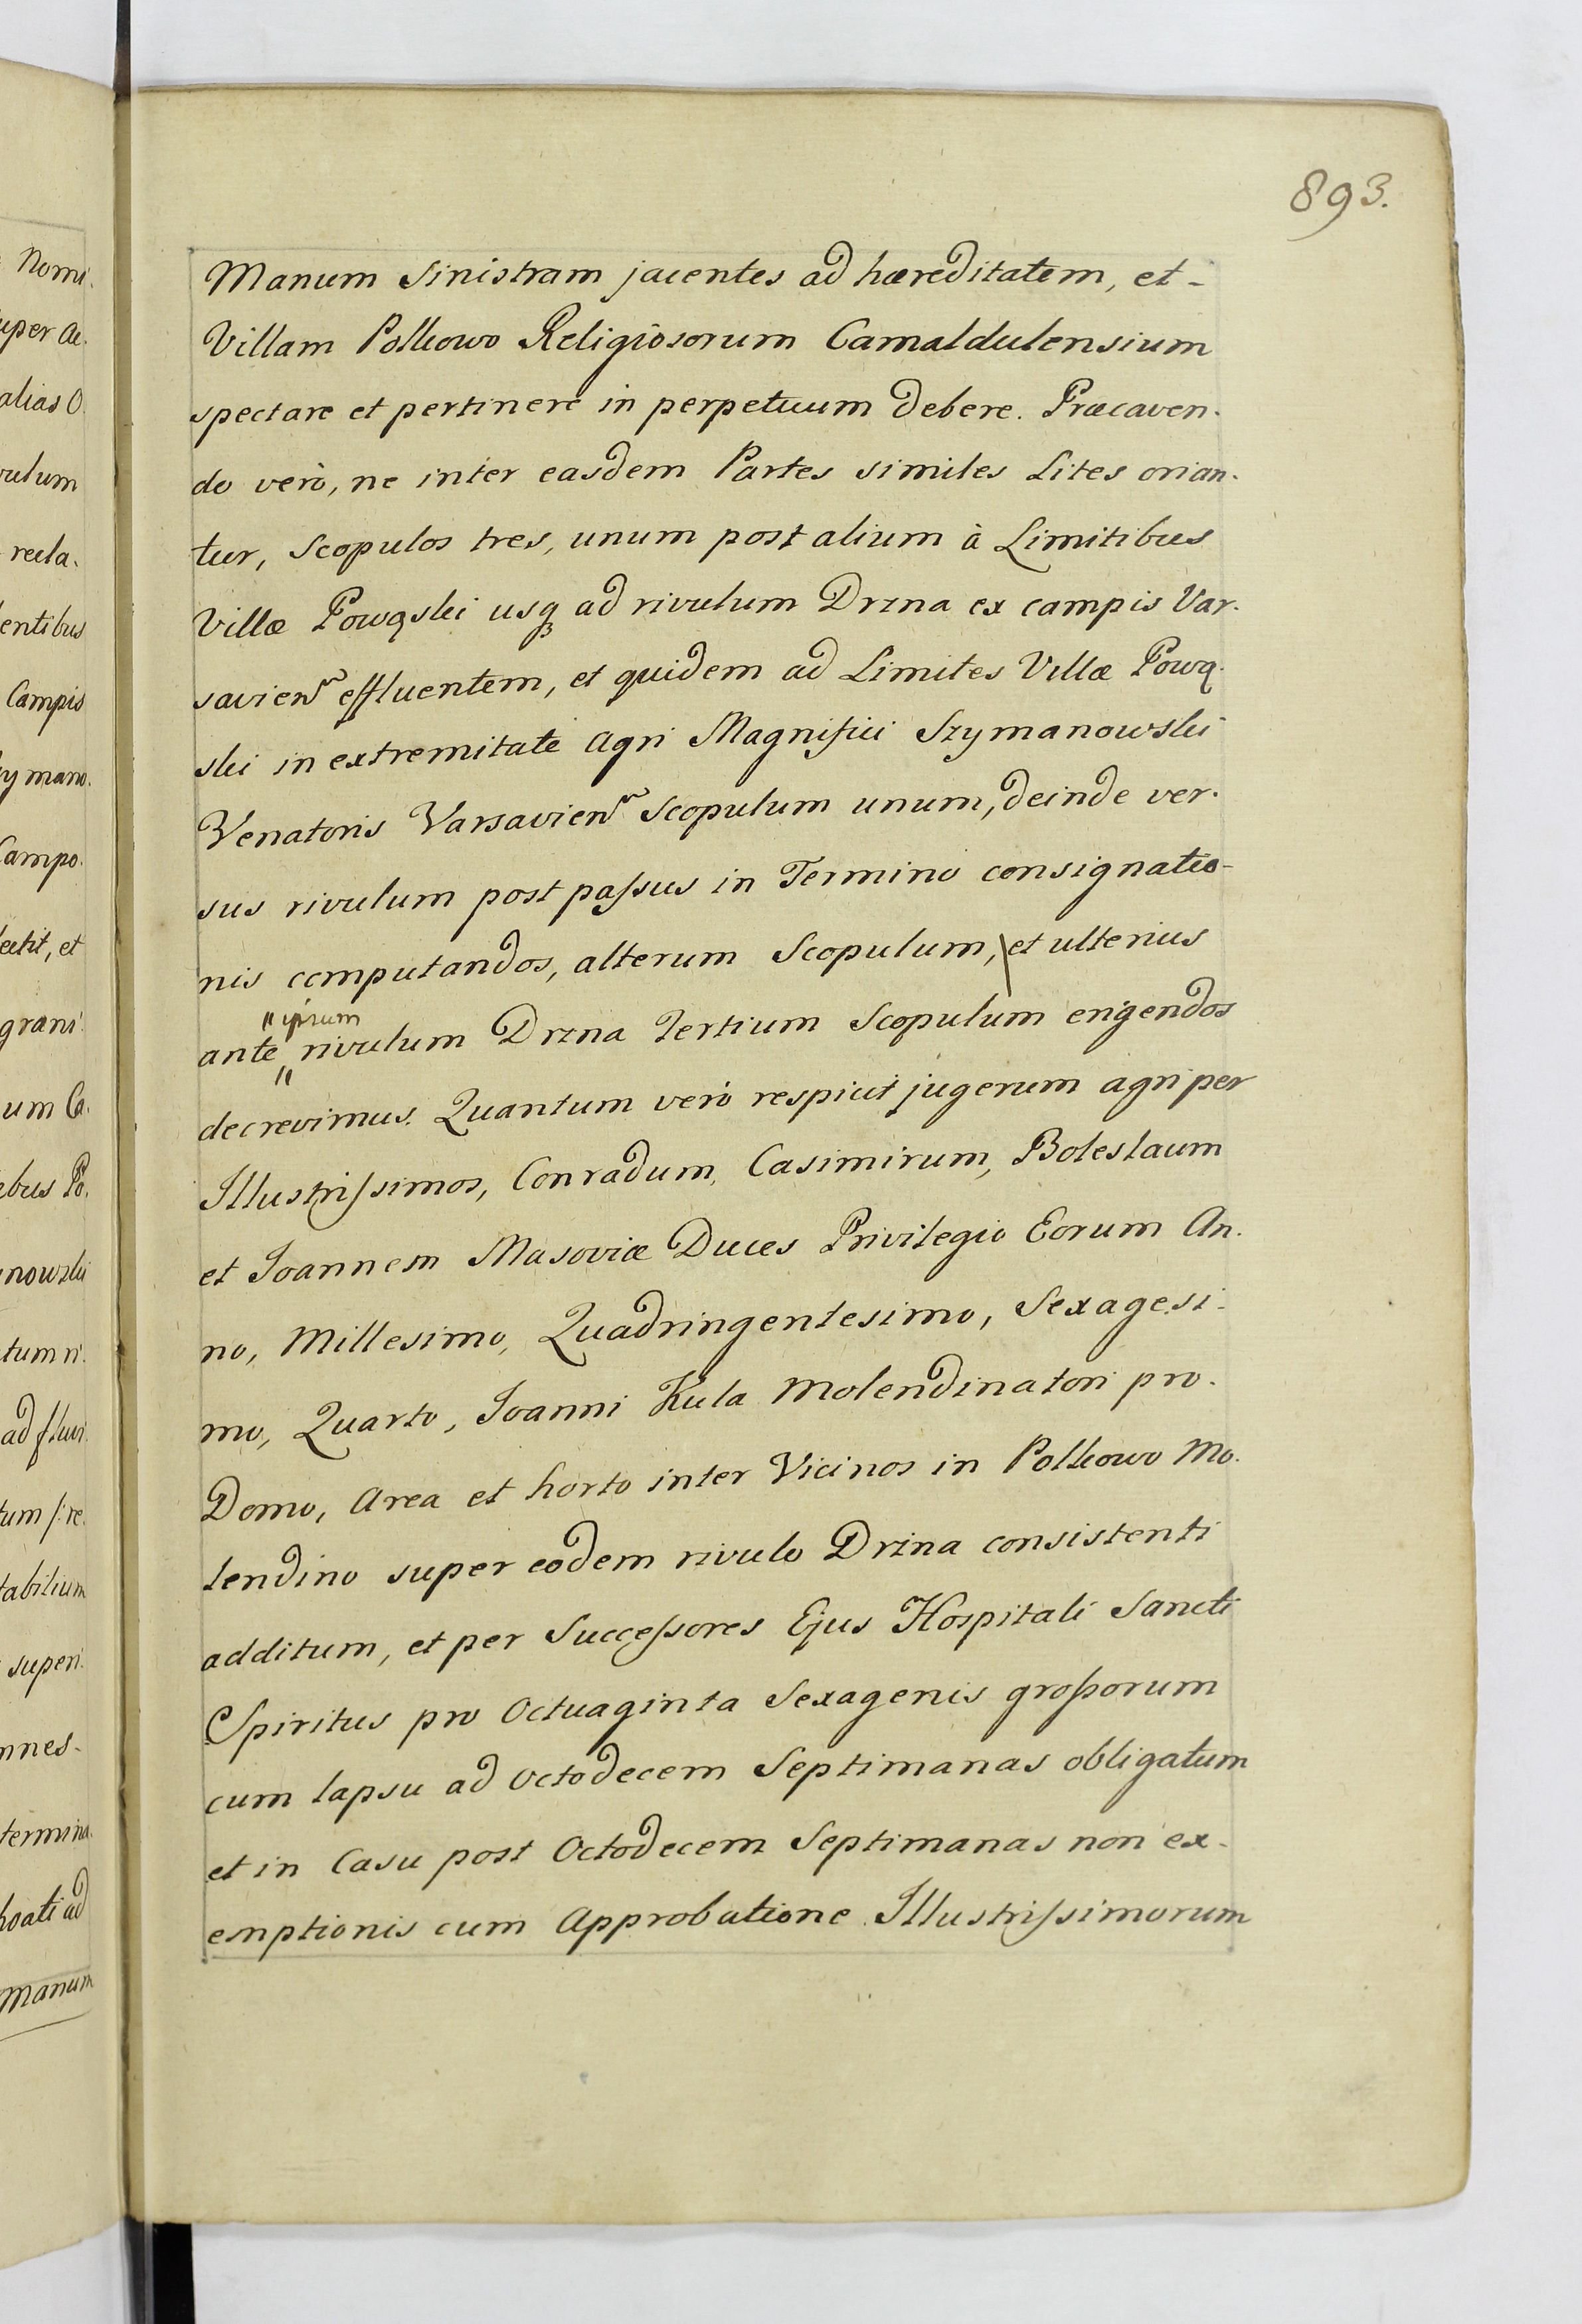 893.
Manum Sinistram jacentes ad hæreditatem, et-
Villam Polkowo Religiosorum Camaldulensium
spectare et pertinere in perpetuum debere. Præcaven-
do verò, ne inter easdem Partes similes Lites orian-
tur, Scopulos tres, unum post alium à Limitibus
Villæ Powąski usq3 ad rivulum Drzna ex campis Var-
savien~ effluentem, et quidem ad Limites Villæ Pową-
ski in extremitate Agri Magnifici Szymanowski
Venatoris Varsavien~ Scopulum unum, deinde ver-
sus rivulum post paſsus in Termino consignatio-
nis computandos, alterum Scopulum, et ulterius
ante " ipsum " rivulum Drzna Tertium Scopulum erigendos
decrevimus. Quantum verò respicit jugerum agri per
Illustriſsimos, Conradum, Casimirum, Boleslaum
et Joannem Masoviæ Duces Privilegio Eorum An-
no, Millesimo, Quadringentesimo, Sexagesi-
mo, Quarto, Joanni Kula Molendinatori pro-
Domo, Area et horto inter Vicinos in Polkowo Mo-
lendino super eodem rivulo Drzna consistenti
additum, et per Succeſsores Ejus Hospitali Sancti
Spiritus pro Octuaginta Sexagenis groſsorum
cum lapsu ad Octodecem Septimanas obligatum
et in Casu post Octodecem Septimanas non ex-
emptionis cum Approbatione Illustriſsimorum
nomi-
uper Ae-
alias O-
vulum
recla-
entibus
Campis
zymano-
Campo-
lectit, et
grani-
um Ca-
ebus Po-
nowski
tum ri-
ad fluvi-
tum /: re-
tabilium
superi-
nnes-
termina-
hoati ad
manum